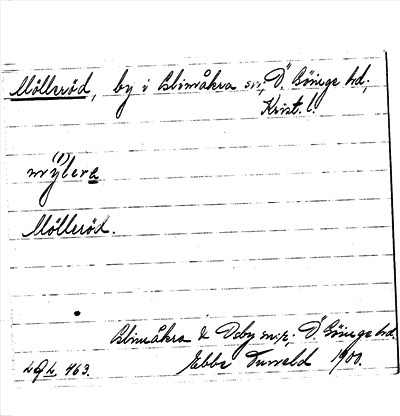 Mölleröd, by i Glimåkra sn, Ö. Göinge hd,
Krist. l.
Mölleröd.
Glimåkra & Osby snr, Ö. Göinge hd.
Ebbe Tuneld 1900.
463.